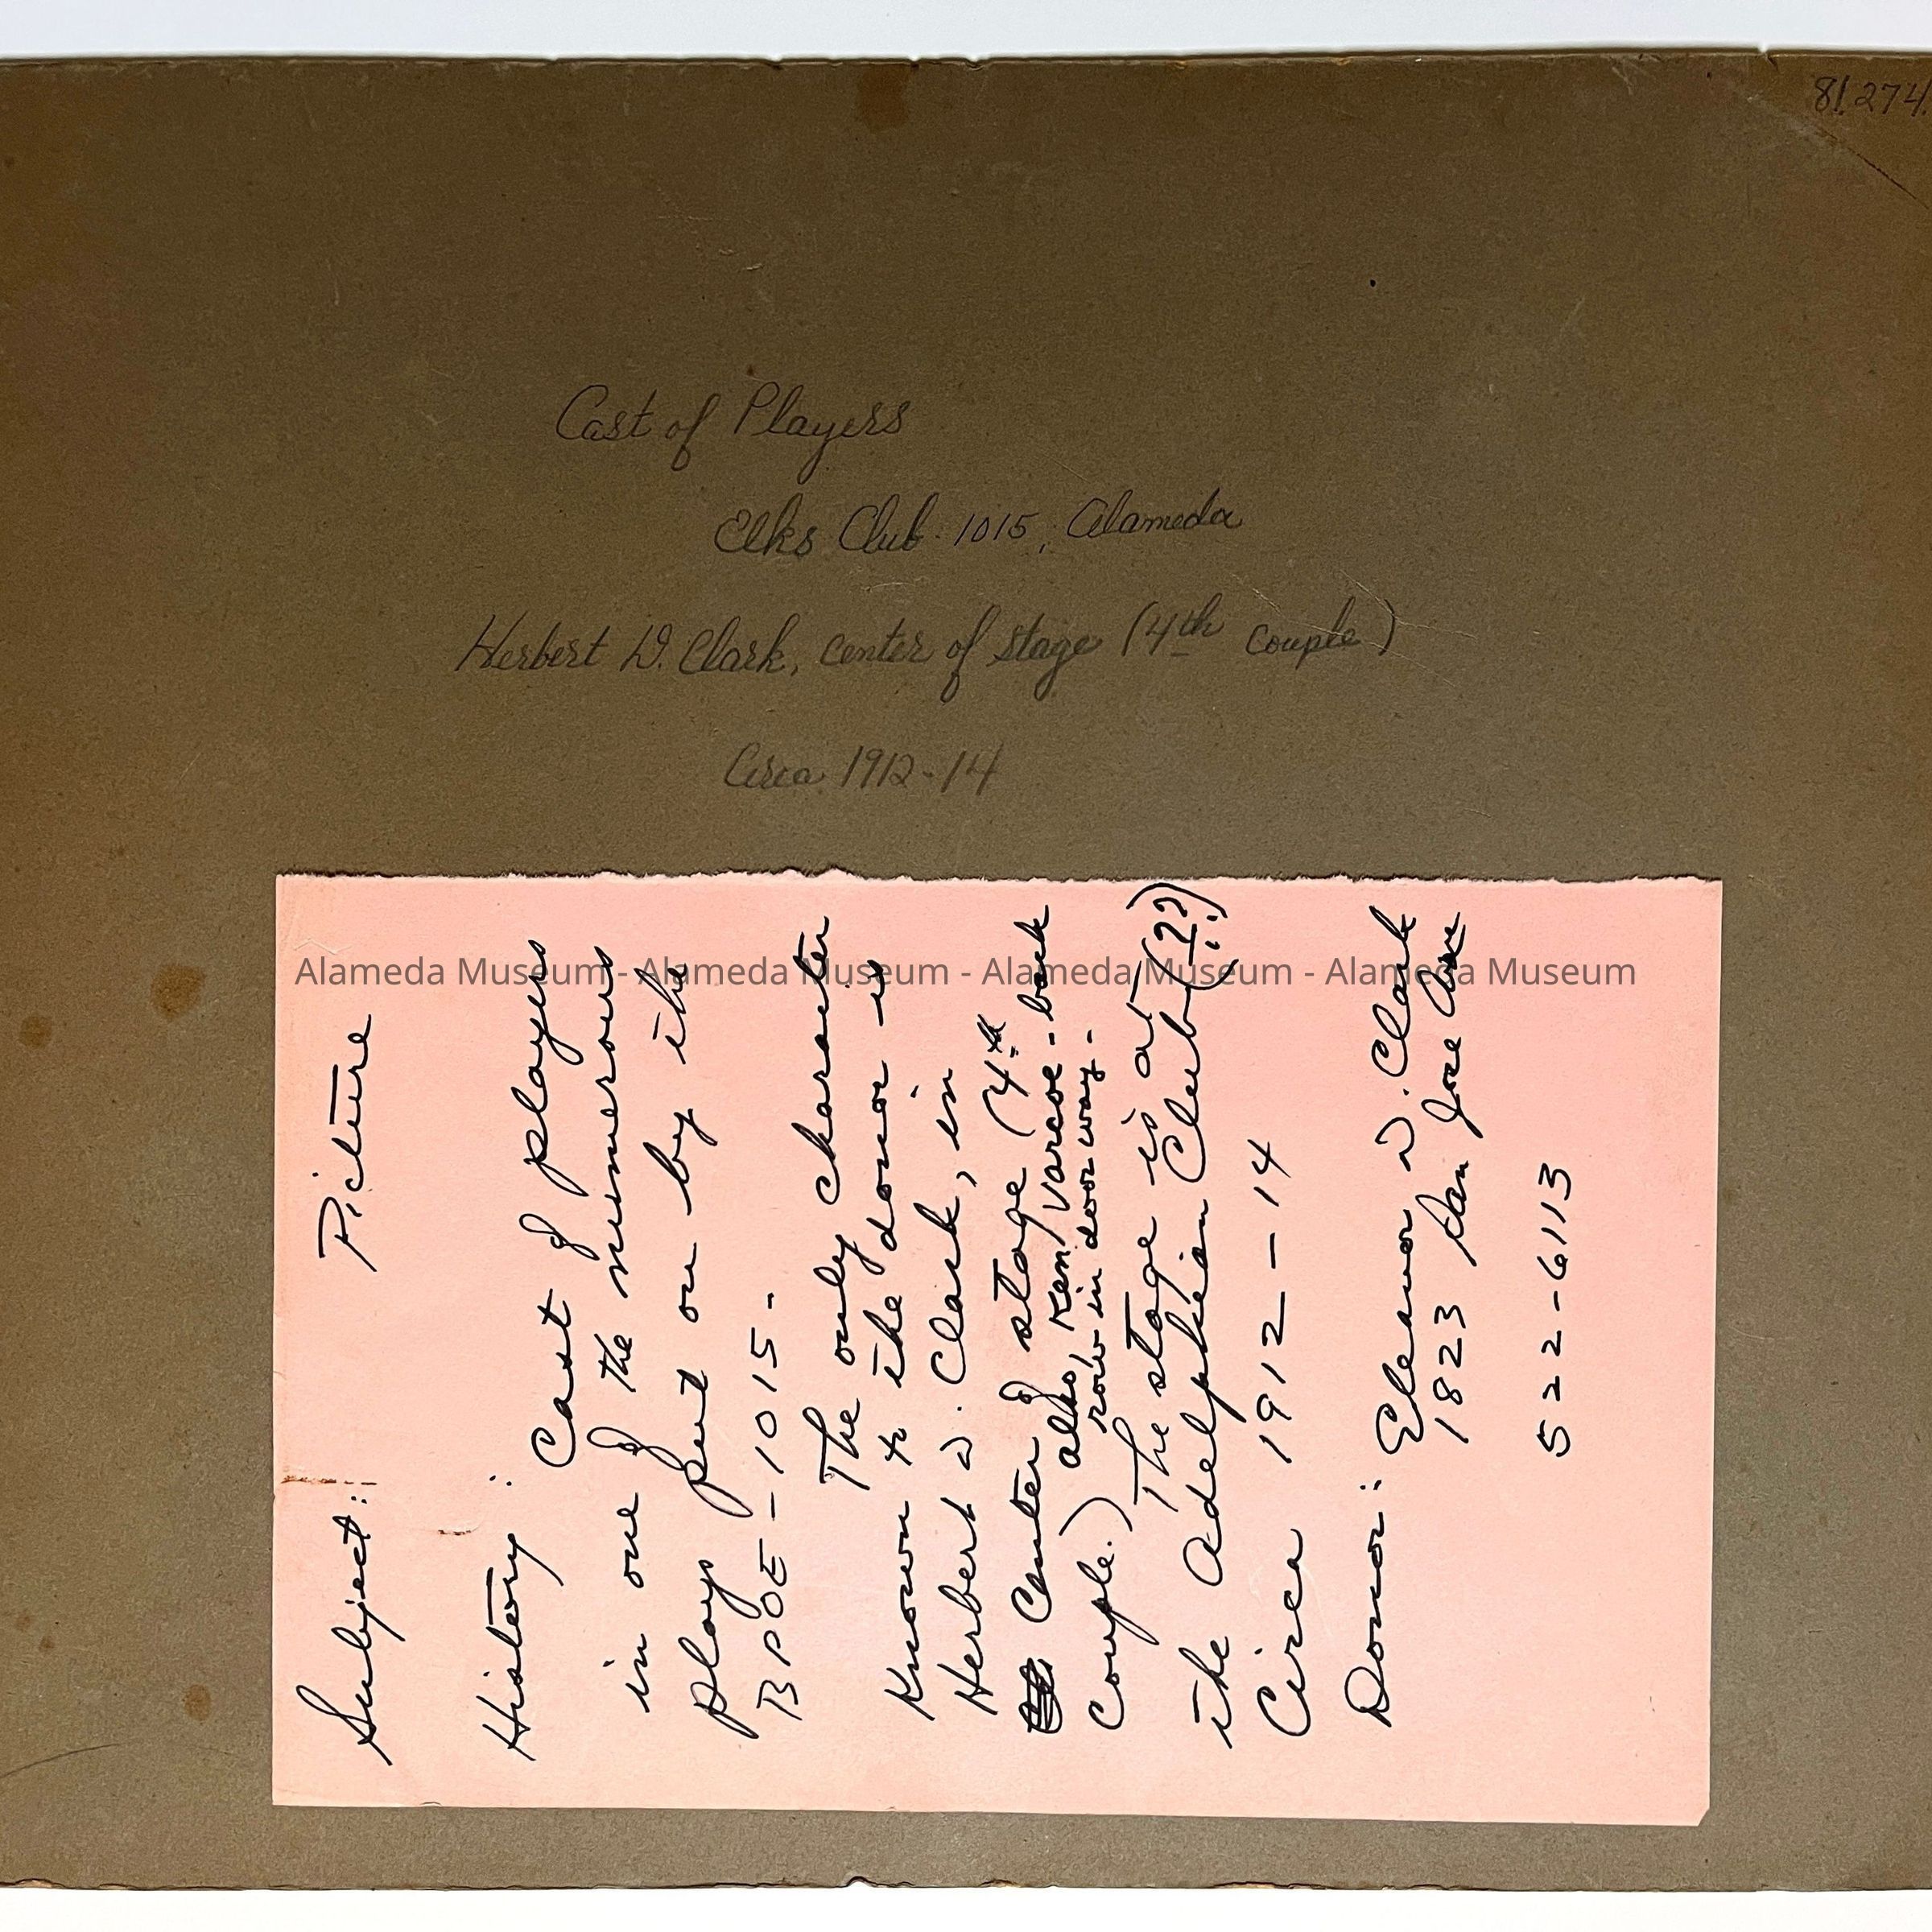 81.274
Cast of Players
Elks Club 1015, Alameda
Herbert D. Clark, center of stage (4th couple)
Circa 1912-14
Alameda Museum - Alameda Museum - Alameda Museum - Alameda Museum
Subject: Picture
History: Cast of players
in one of the numerous
plays put on by the
BPOE - 1015 -
The only character
known to the donor is
Herbert D. Clark, in
Center of stage (4th
also, Ken Varcoe - back
row in door way -
Couple.)
The stage is at
the Adelphian Club (??)
Circa 1912 - 14
Donor: Eleanor D. Clark
1823 San Jose Ave
522-6113